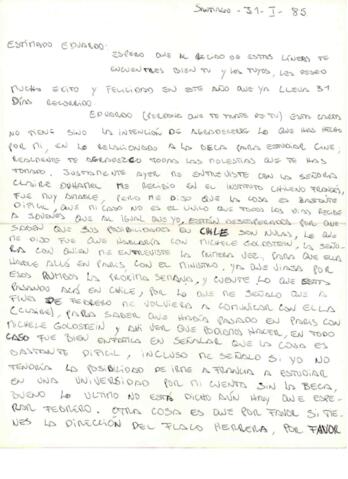 SANTIAGO - 31 - I - 85
ESTIMADO EDUARDO:
ESPERO QUE AL RECIBO DE ESTAS LÍNEAS TE
ENCUENTRES BIEN TU Y LOS TUYOS, LES DESEO
MUCHO EXITO Y FELICIDAD EN ESTE AÑO QUE YA LLEVA 31
DÍAS RECORRIDO
EDUARDO (PERDONA QUE TE TRATE DE TU) ESTA CARTA
NO TIENE SINO LA INTENCIÓN DE AGRADECERTE LO QUE HAS HECHO
POR MI, EN LO RELACIONADO A LA BECA PARA ESTUDIAR CINE,
REALMENTE TE AGRADEZCO TODAS LAS MOLESTIAS QUE TE HAS
TOMADO. JUSTAMENTE AYER ME ENTREVISTE CON LA SEÑORA
CLAIRE DUHAMEL ME RECIBIO EN EL INSTITUTO CHILENO FRANCÉS,
FUE MUY AMABLE, PERO ME DIJO QUE LA COSA ES BASTANTE
DIFICIL, QUE MI CASO NO ES EL UNICO QUE TODOS LOS DIAS RECIBE
A JOVENES QUE AL IGUAL QUE YO, ESTÁN DESESPERADOS POR QUE
SABEN QUE SUS POSIBILIDADES EN CHILE SON NULAS, LO QUE
ME DIJO FUE QUE HABLARIA CON MICHELE GOLDSTEIN, LA SEÑO-
RA CON QUIEN ME ENTREVISTE LA PRIMERA VEZ, PARA QUE ELLA
HABLE ALLÁ EN PARIS CON EL MINISTRO, YA QUE VIAJA POR
ESOS RUMBOS LA PROXIMA SEMANA, Y CUENTE LO QUE ESTA
PASANDO ACÁ EN CHILE, POR LO QUE ME SEÑALO QUE A
FINES DE FEBRERO ME VOLVIERA A COMUNICAR CON ELLA
(CLAIRE), PARA SABER QUE HABÍA PASADO EN PARIS CON
MICHELE GOLDSTEIN Y AHÍ VER QUE PODRÍAMOS HACER, EN TODO
CASO FUE BIEN ENFATICA EN SEÑALAR QUE LA COSA ES
BASTANTE DIFICIL, INCLUSO ME SEÑALO SI YO NO
TENDRÍA LA POSIBILIDAD DE IRME A FRANCIA A ESTUDIAR
EN UNA UNIVERSIDAD POR MI CUENTA SIN LA BECA,
BUENO LO ULTIMO NO ESTÁ DICHO AÚN HAY QUE ESPE-
RAR FEBRERO. OTRA COSA ES QUE POR FAVOR SI TIE-
NES LA DIRECCIÓN DEL FLACO HERRERA, POR FAVOR